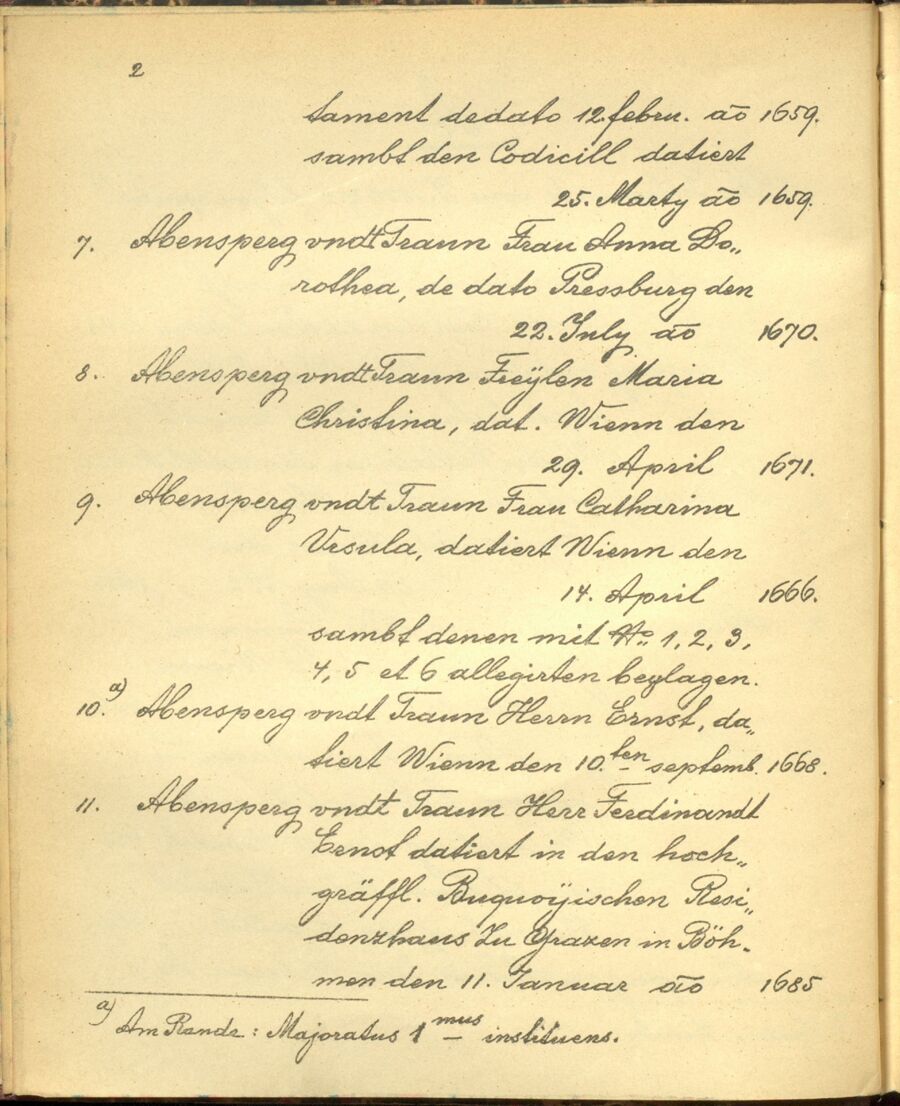 2
tament dedato 12. febru. aõ 1659.
sambt den Codicill datiert
25. Marty aõ 1659.
7. Abensperg vndt Traun Frau Anna Do„
rothea, de dato Pressburg den
22. July aõ 1670.
8. Abensperg vndt Traun Freÿlen Maria
Christina, dat. Wienn den
29. April 1671.
9. Abensperg vndt Traun Frau Catharina
Vrsula, datiert Wienn den
14. April 1666.
sambt denen mit No. 1, 2, 3,
4, 5 et 6 allegirten beylagen.
10. a) Abensperg vndt Traun Herrn Ernst, da„
tiert Wienn den 10.ten septemb. 1668.
11. Abensperg vndt Traun Herr Ferdinandt
Ernst datiert in den hoch„
gräffl. Buquoÿischen Resi„
denzhaus Zu Grazen in Böh„
men den 11. Januar aõ 1685
a) Am Rande: Majoratus 1mus instituens.